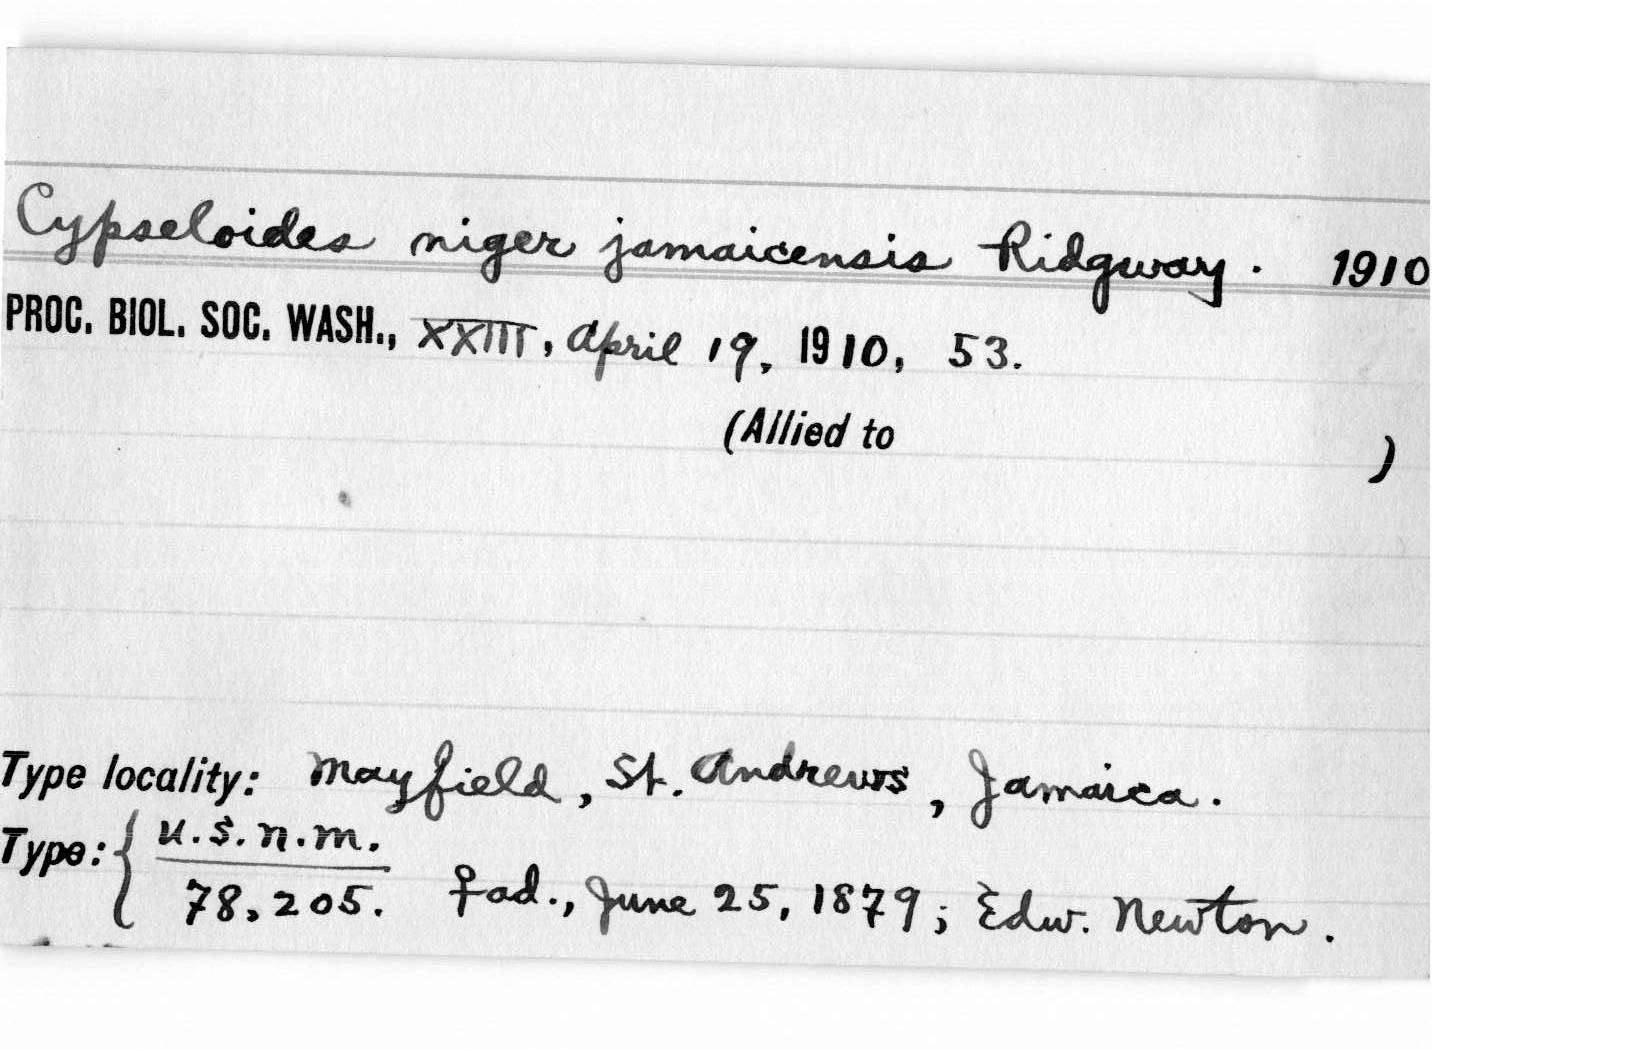 Cypseloides niger jamaicensis Ridgway. 1910
PROC. BIOL. SOC. WASH., XXIII, April 19, 1910, 53.
(Allied to )
Type locality: Mayfield, St. Andrews, Jamaica.
Type: { U.S.N.M.
78,205. ♀ ad., June 25, 1879; Edw. Newton.